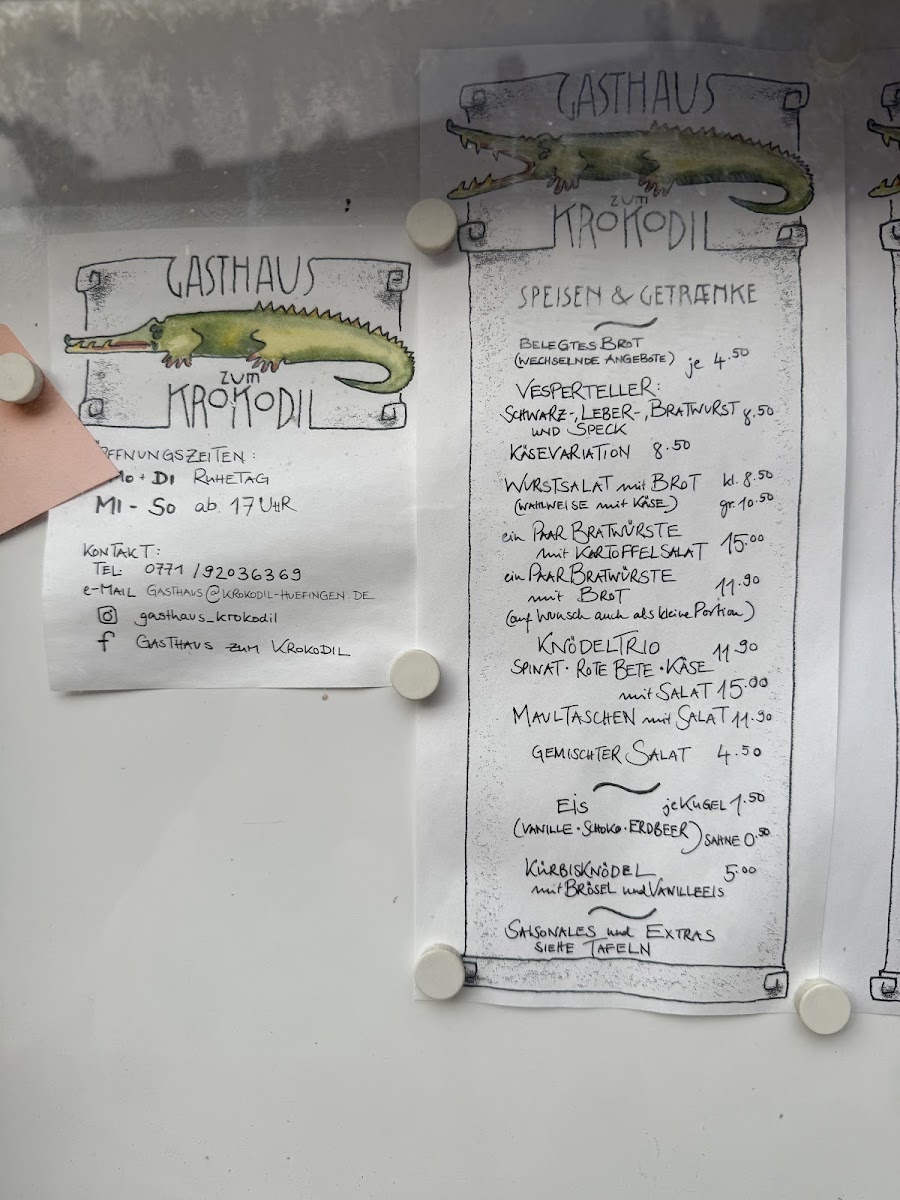 GASTHAUS
zum
KROKODIL
ÖFFNUNGSZEITEN:
Mo + DI RUHETAG
MI - So ab 17 UHR
KONTAKT:
TEL: 0771 / 92036369
e-MAIL GASTHAUS@KROKODIL-HUEFINGEN.DE
gasthaus_krokodil
f GASTHAUS zum KROKODIL
GASTHAUS
zum
KROKODIL
SPEISEN & GETRÆNKE
BELEGTES BROT
(WECHSELNDE ANGEBOTE) je 4.50
VESPERTELLER:
SCHWARZ-, LEBER-, BRATWURST 8.50
UND SPECK
KÄSEVARIATION 8.50
WURSTSALAT mit BROT kl. 8.50
(WAHLWEISE mit KÄSE) gr. 10.50
ein PAAR BRATWÜRSTE
mit KARTOFFELSALAT 15.00
ein PAAR BRATWÜRSTE
mit BROT 11.90
(auf Wunsch auch als kleine Portion)
KNÖDELTRIO 11.90
SPINAT · ROTE BETE · KÄSE
mit SALAT 15.00
MAULTASCHEN mit SALAT 11.90
GEMISCHTER SALAT 4.50
EiS je KUGEL 1.50
(VANILLE · SCHOKO · ERDBEER) SAHNE 0.50
KÜRBISKNÖDEL 5.00
mit BRÖSEL und VANILLEEIS
SAISONALES und EXTRAS
SIEHE TAFELN